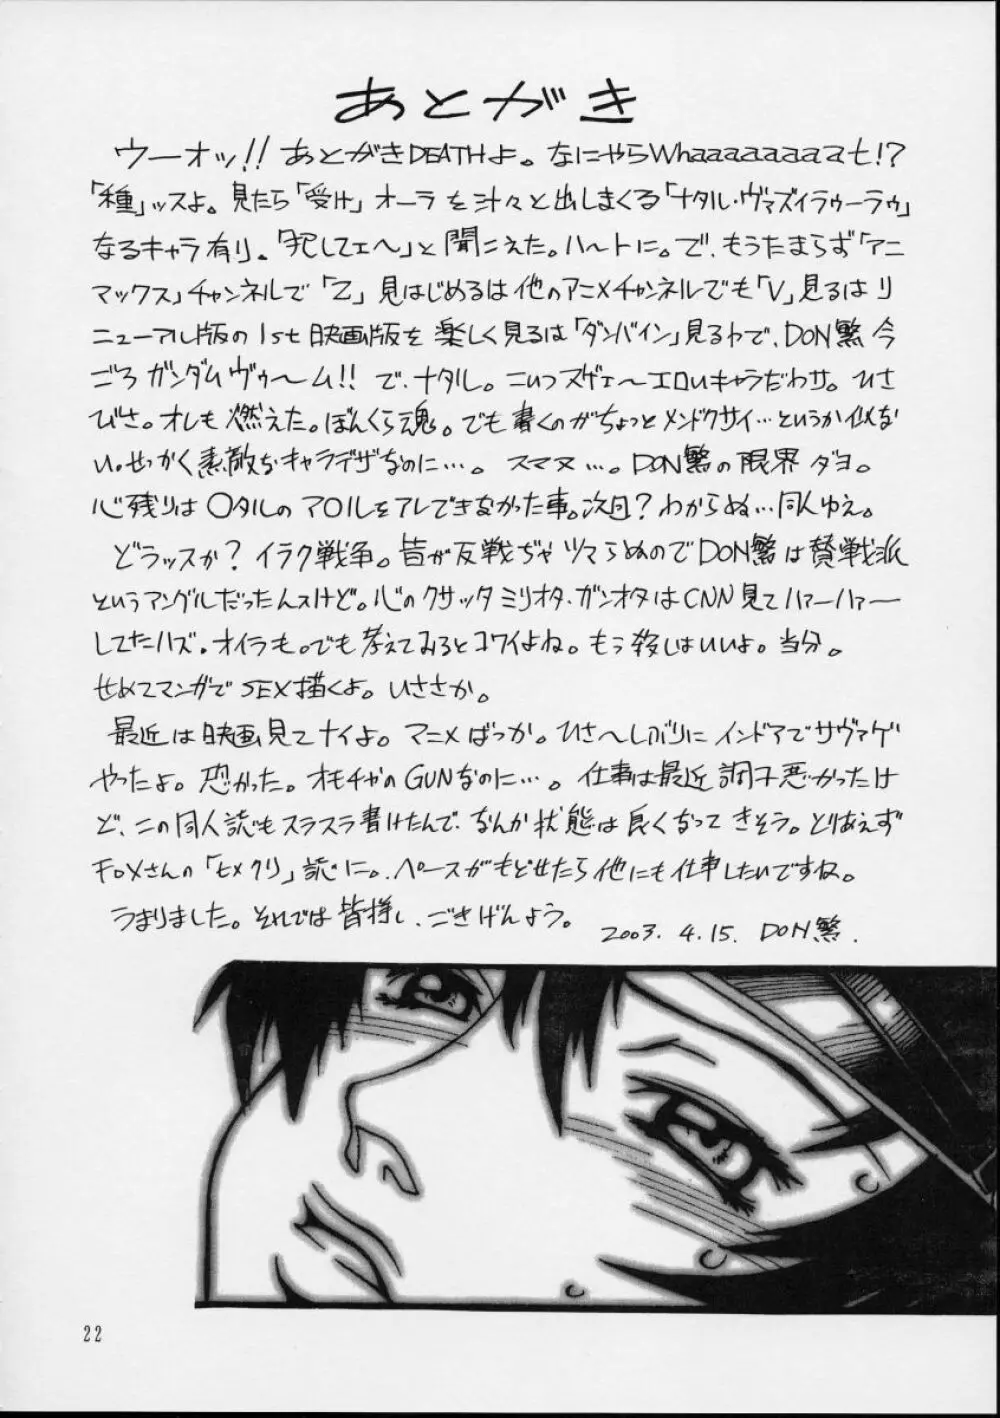 あとがき
ウーオッ!! あとがきDEATHよ。なにやらWhaaaaaaaaat!?
「種」ッスよ。見たら「受け」オーラを汁々と出しまくる「ナタル・ヴァズイラゥーラゥ」
なるキャラ有り。「犯してェ〜」と聞こえた。ハートに。で、もうたまらず「アニ
マックス」チャンネルで「Z」見はじめるは他のアニメチャンネルでも「V」見るはリ
ニューアル版の1st映画版を楽しく見るは「ダンバイン」見るわで、DON繁今
ごろガンダムヴゥ〜ム!! で、ナタル。こいつスゲェ〜エロいキャラだわサ。ひさ
びさ。オレも燃えた。ぼんくら魂。でも書くのがちょっとメンドクサイ…というか似な
い。せっかく素敵なキャラデザなのに…。スマヌ…。DON繁の限界ダヨ。
心残りは〇タルのア〇ルをアレできなかった事。次回?わからぬ…同人ゆえ。
どうッスか?イラク戦争。皆が反戦ぢゃツマらぬのでDON繁は賛戦派
というアングルだったんスけど。心のクサッタミリオタ、ガンオタはCNN見てハァーハァー
してたハズ。オイラも。でも考えてみるとコワイよね。もう殺しはいいよ。当分。
せめてマンガでSEX描くよ。いささか。
最近は映画見てナイよ。アニメばっか。ひさ〜しぶりにインドアでサヴァゲ
やったよ。恐かった。オモチャのGUNなのに…。仕事は最近調子悪かったけ
ど、この同人誌もスラスラ書けたんで、なんか状態は良くなってきそう。とりあえず
FOXさんの「EXクリ」読に。ペースがもどせたら他にも仕事したいですね。
うまりました。それでは皆様、ごきげんよう。
2003. 4.15. DON繁.
22